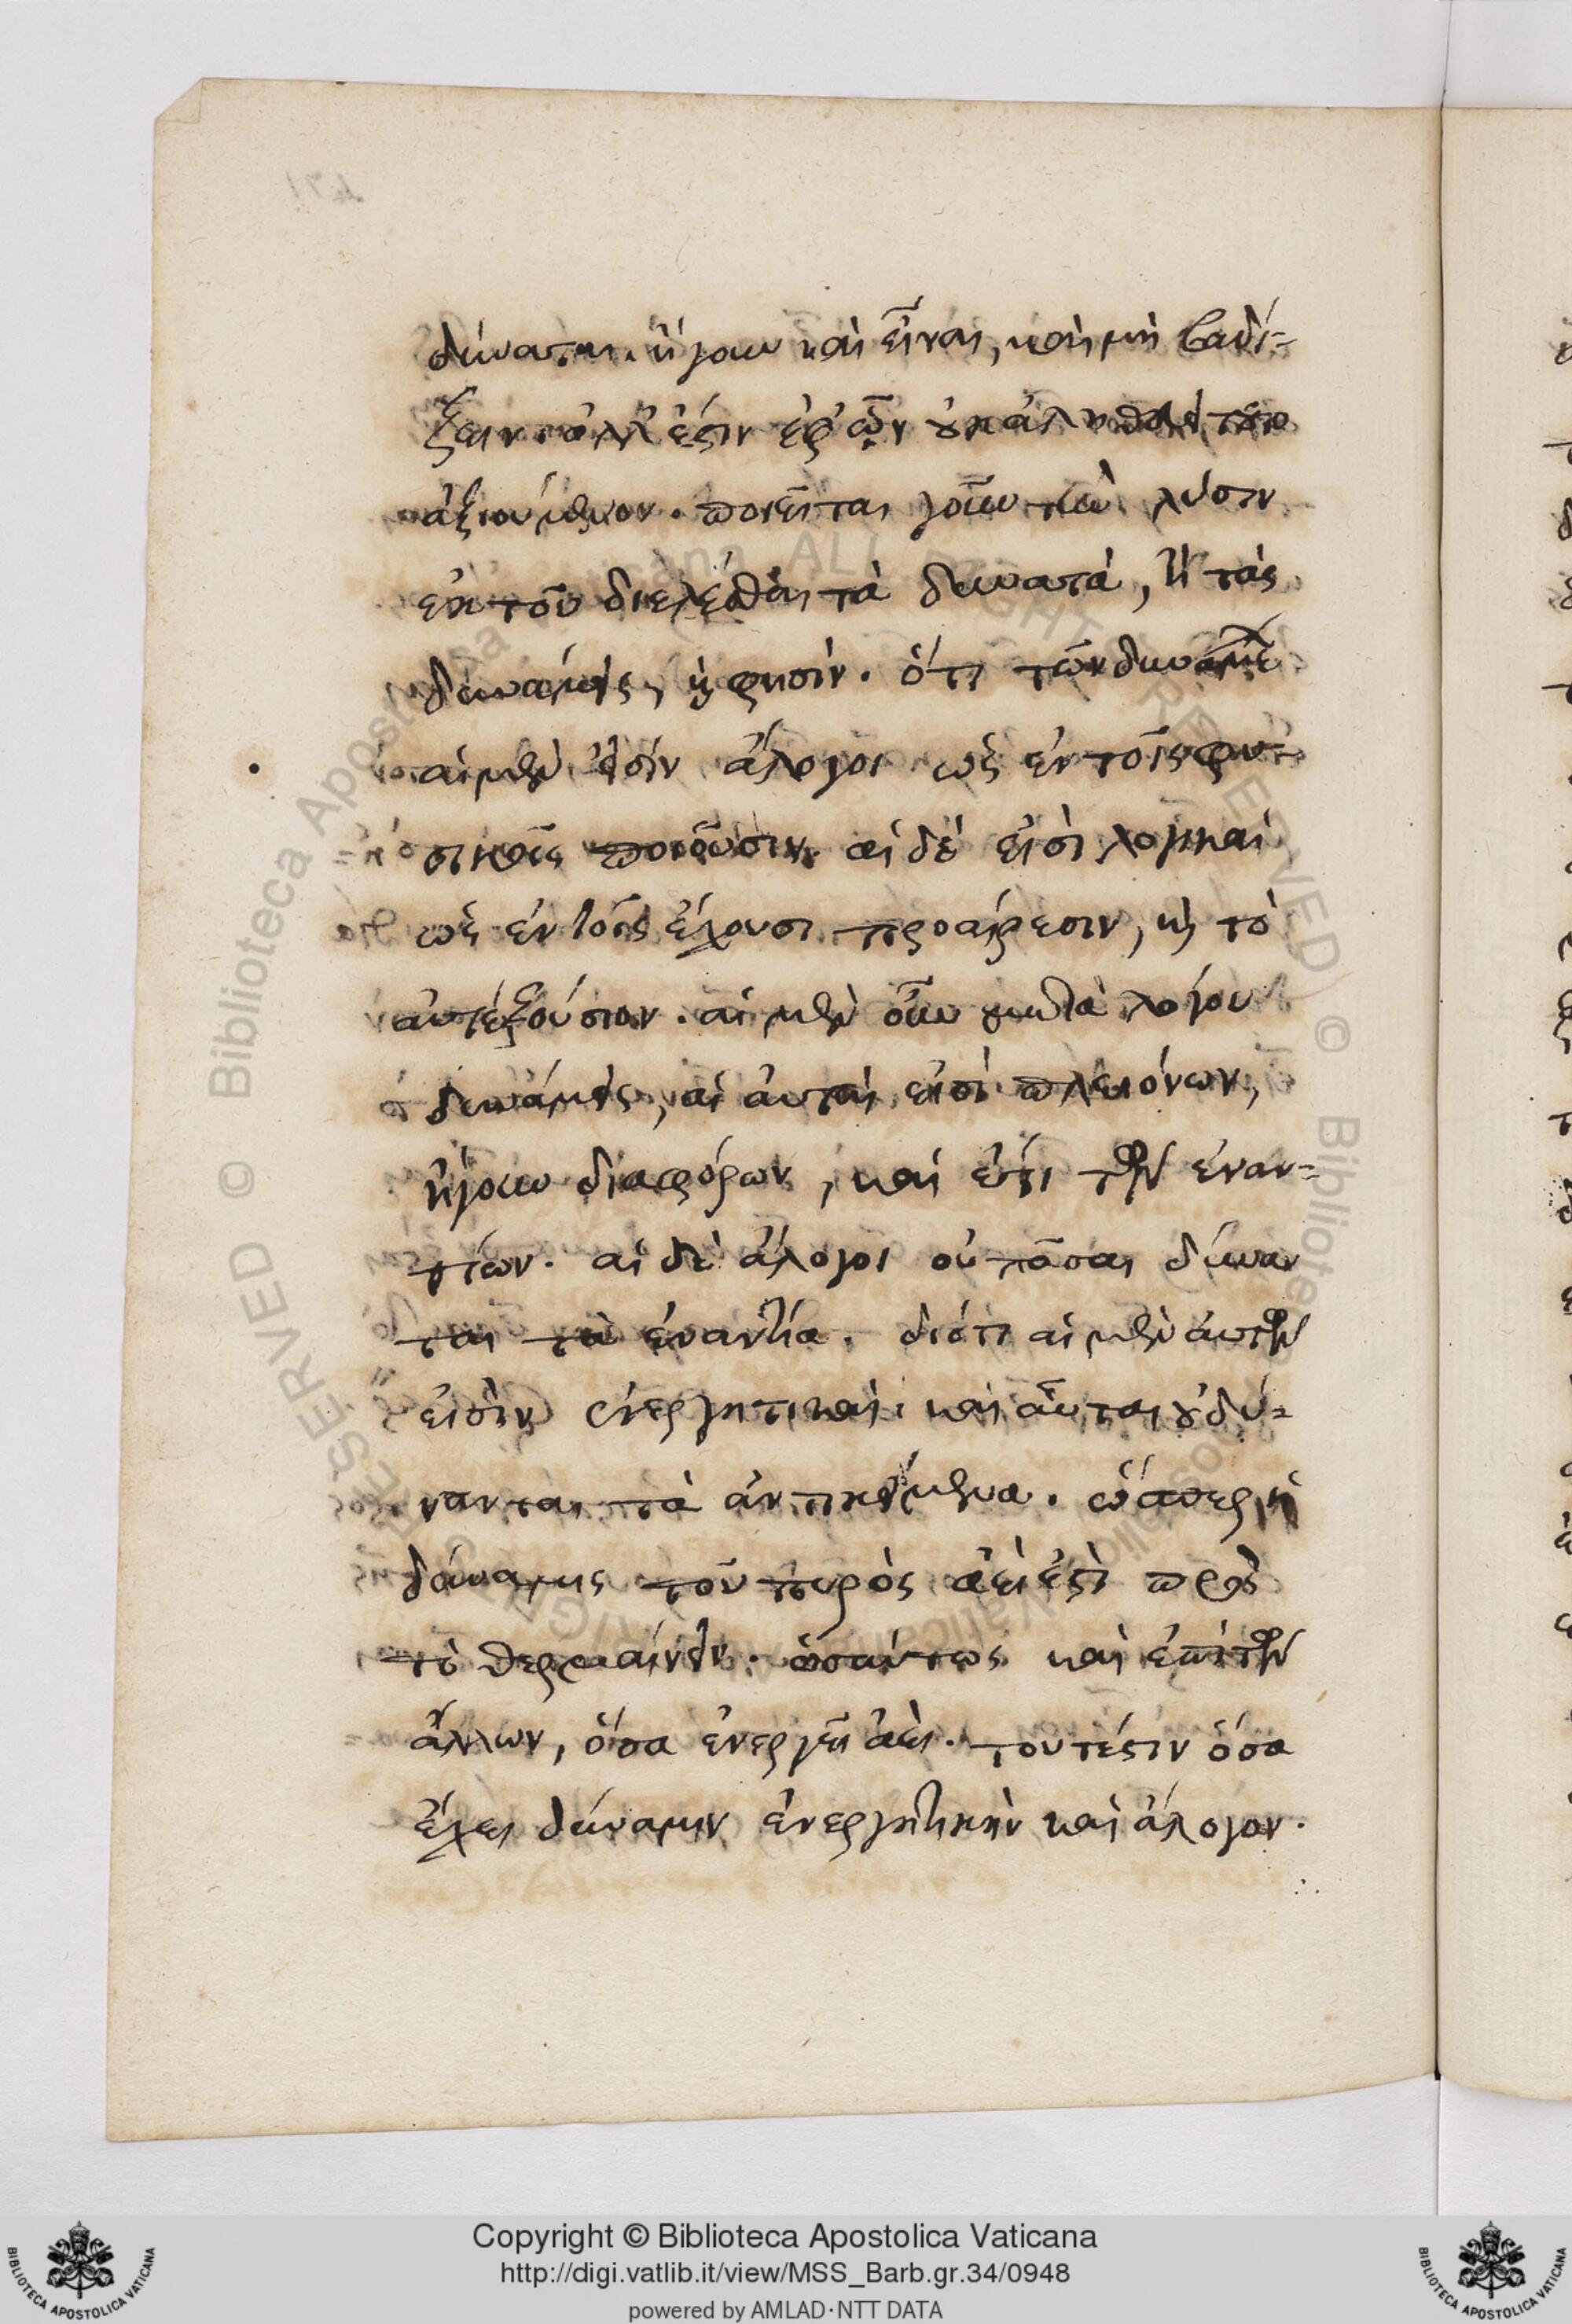 δύναται. ἤγουν καὶ εἶναι, καὶ μὴ βαδί-
ζειν. ἀλλ' ἔστιν ἐφ' ὧν οὐκ ἀληθὲς τὸ
ἀξιούμενον. ποιεῖται γοῦν τὴν λύσιν
ἐκ τοῦ διελέσθαι τὰ δυνατά, ἢ τὰς
δυνάμεις, καὶ φησίν. ὅτι τῶν δυνάμεων
αἱ μέν εἰσιν ἄλογοι ὡς ἐν τοῖς φυ-
σικῶς ποιοῦσιν. αἱ δὲ εἰσὶ λογικαὶ
ὡς ἐν τοῖς ἔχουσι προαίρεσιν, καὶ τὸ
αὐτεξούσιον. αἱ μὲν οὖν μετὰ λόγου
δυνάμεις, αἱ αὐταὶ εἰσὶ πλειόνων,
ἤγουν διαφόρων, καὶ ἔτι τῶν ἐναν-
τίων. αἱ δὲ ἄλογοι οὐ πᾶσαι δύναν
ται τὰ ἐναντία. διότι αἱ μὲν αὐτῶν
εἰσὶν ἐνεργητικαὶ. καὶ αὗται οὐ δύ-
νανται τὰ ἀντικείμενα. ὥσπερ ἡ
δύναμις τοῦ πυρὸς ἀεὶ ἐστὶ πρὸς
τὸ θερμαίνειν. ὡσαύτως καὶ ἐπὶ τῶν
ἄλλων, ὅσα ἐνεργεῖ ἀεὶ. τουτέστιν ὅσα
ἔχει δύναμιν ἐνεργητικὴν καὶ ἄλογον.
Copyright © Biblioteca Apostolica Vaticana
http://digi.vatlib.it/view/MSS_Barb.gr.34/0948
powered by AMLAD·NTT DATA